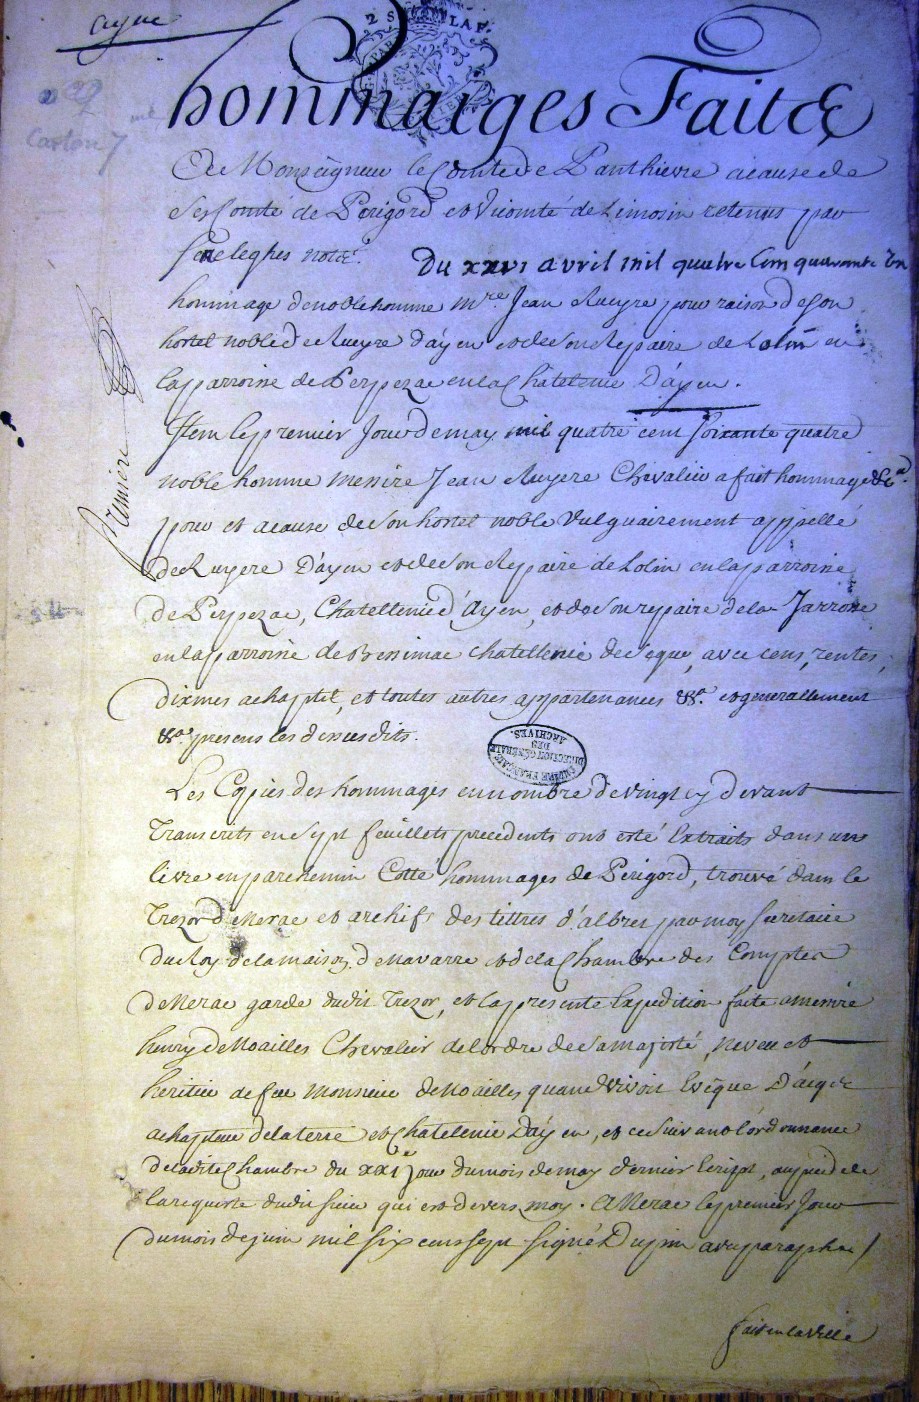 ayen
22
Carton 7
hommaiges Faitz &
De Monseigneur le Comte de Panthievre acause de
Ses Comté de Perigord et Vicomté de Limosin retenus par
Seneleghes notre. Du xxvi avril mil quatre Cens quarante Un
hommage de noble homme Mre. Jean Rueyre pour raison de son
hortel noble de Rueyre D'ayen et de son Repaire de Lolin en
la parroine de Perpezac en la Châtelenie D'ayen.
Item le premier Jour de may mil quatre cent soixante quatre
noble homme messire Jean Ruyere Chevalier a fait hommage &ca.
pour et acause de son hortel noble Vulguairement appellé
de Ruyere D'ayen et de son Repaire de Lolin en la parroine
de Perpezac, Chatellenie d'Ayen, et de son repaire de la Jarrosse
en la parroine de Bessimac chatellenie de Seque, avec cens, rentes,
dixmes achaptet, et toutes autres appartenances &a. et generallement
&a. presens les dessusdits.
EMPIRE FRANÇAIS
DIRECTION GÉNÉRALE DES ARCHIVES.
Les Copies des hommages en nombre de vingt cy devant
Transcrits en Sept feuillets precedents ont esté Extraits dans un
livre en parchemin Cotté hommages de Périgord, trouvé dans le
Trezor de Nerac et archifs des tittres d'albret par moy secretaire
du Roy de la maison de Navarre et de la Chambre des Comptes
de Nerac garde dudit Trezor, et la presente Expedition faite a messire
henry de Noailles Chevalier de l'ordre de sa majesté, Neveu et
heritier de feu Monsieur de Noailles quand vivoit Evêque D'acqz
achapteur de la terre et Chatelenie D'ayen, et ce suivant l'ordonnance
de ladite Chambre du XXI jour du mois de may dernier Script, au pied de
la requeste dudit sieur qui est devers moy. A Nerac le premier Jour
du mois de juin mil six cens sept signé Dupin avec paraphe /
fait en la ville